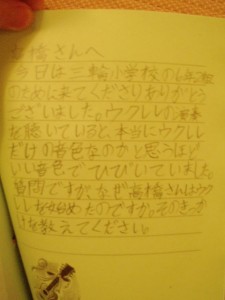 高橋さんへ
今日は三輪小学校の6年2組
のために来てくださりありがとう
ございました。ウクレレの音
を聴いていると、本当にウクレレ
だけの音色なのかと思うほど
いい音色でひびいていました。
質問ですが、なぜ高橋さんはウク
レレを始めたのですか。そのきっか
けを教えてください。